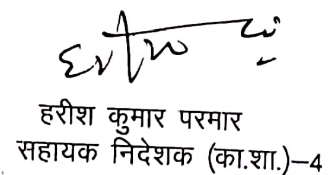 हरीश कुमार परमार
सहायक निदेशक (का.शा.)–4